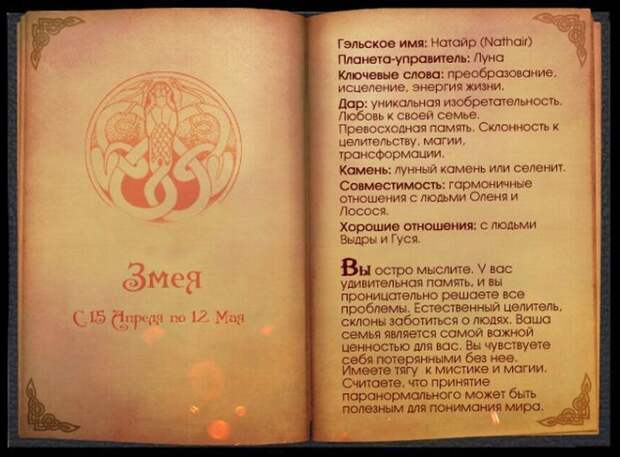 Змея
С 15 Апреля по 12 Мая
Гэльское имя: Натайр (Nathair)
Планета-управитель: Луна
Ключевые слова: преобразование,
исцеление, энергия жизни.
Дар: уникальная изобретательность.
Любовь к своей семье.
Превосходная память. Склонность к
целительству, магии,
трансформации.
Камень: лунный камень или селенит.
Совместимость: гармоничные
отношения с людьми Оленя и
Лосося.
Хорошие отношения: с людьми
Выдры и Гуся.
Вы остро мыслите. У вас
удивительная память, и вы
проницательно решаете все
проблемы. Естественный целитель,
склоны заботиться о людях. Ваша
семья является самой важной
ценностью для вас. Вы чувствуете
себя потерянными без нее.
Имеете тягу к мистике и магии.
Считаете, что принятие
паранормального может быть
полезным для понимания мира.